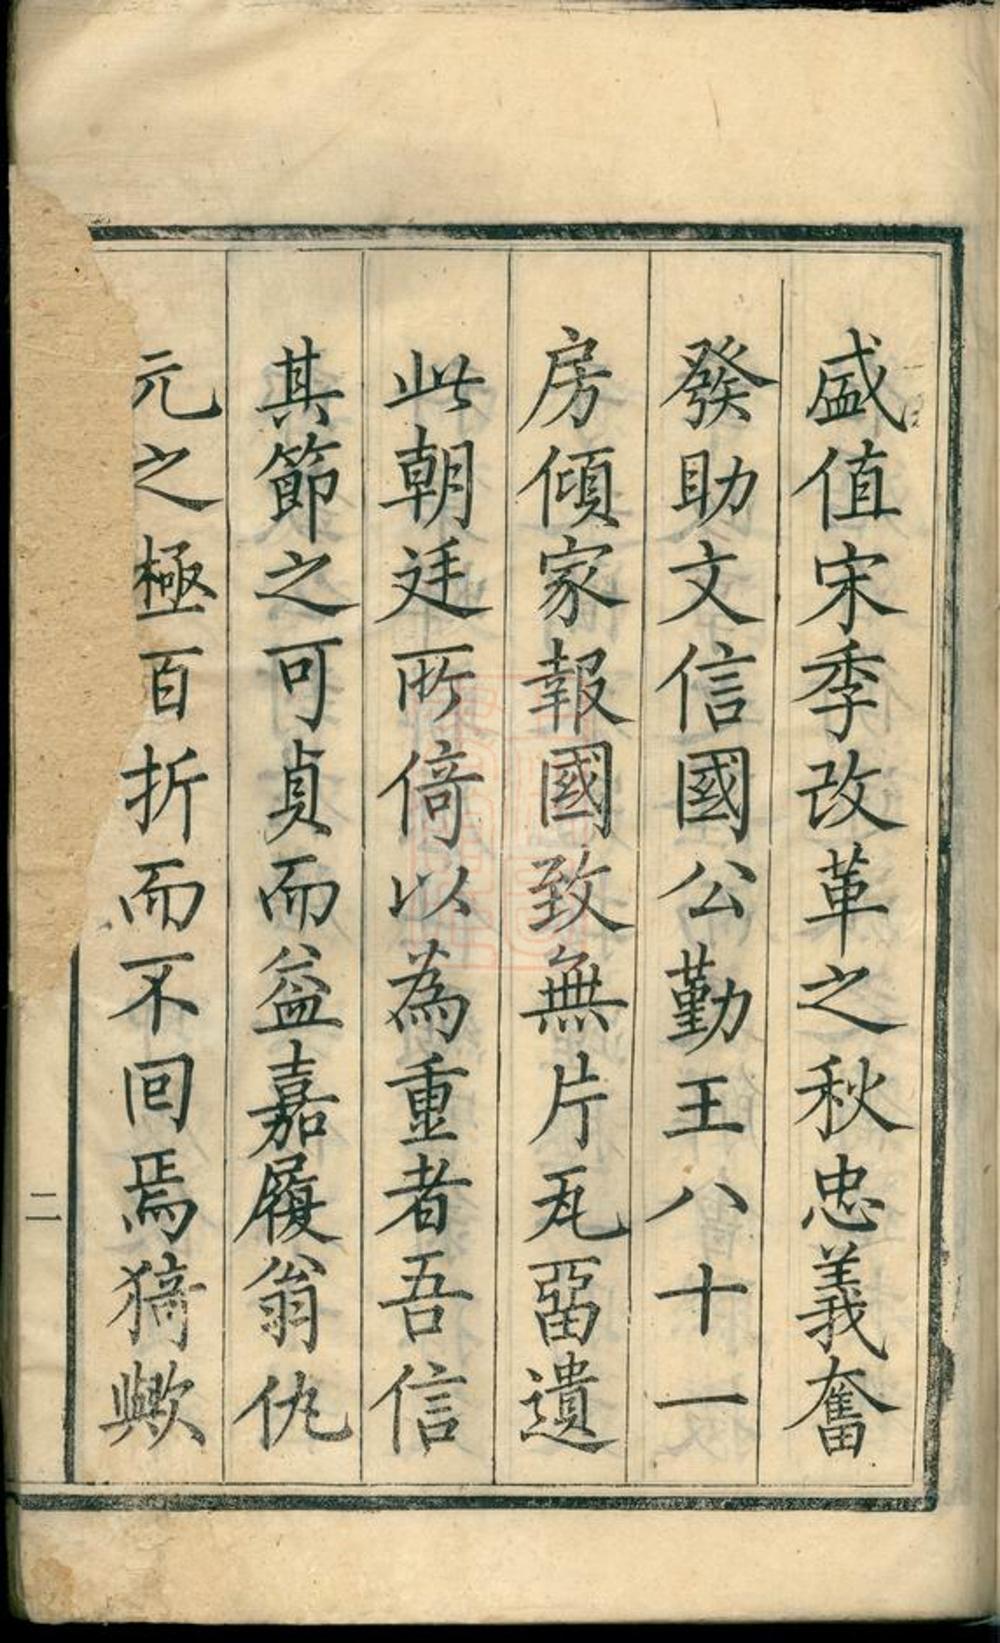 盛值宋季改革之秋忠義奮
發助文信國公勤王八十一
房傾家報國致無片瓦畱遺
此朝廷所倚以為重者吾信
其節之可貞而益嘉履翁仇
元之極百折而不回焉猗歟
二